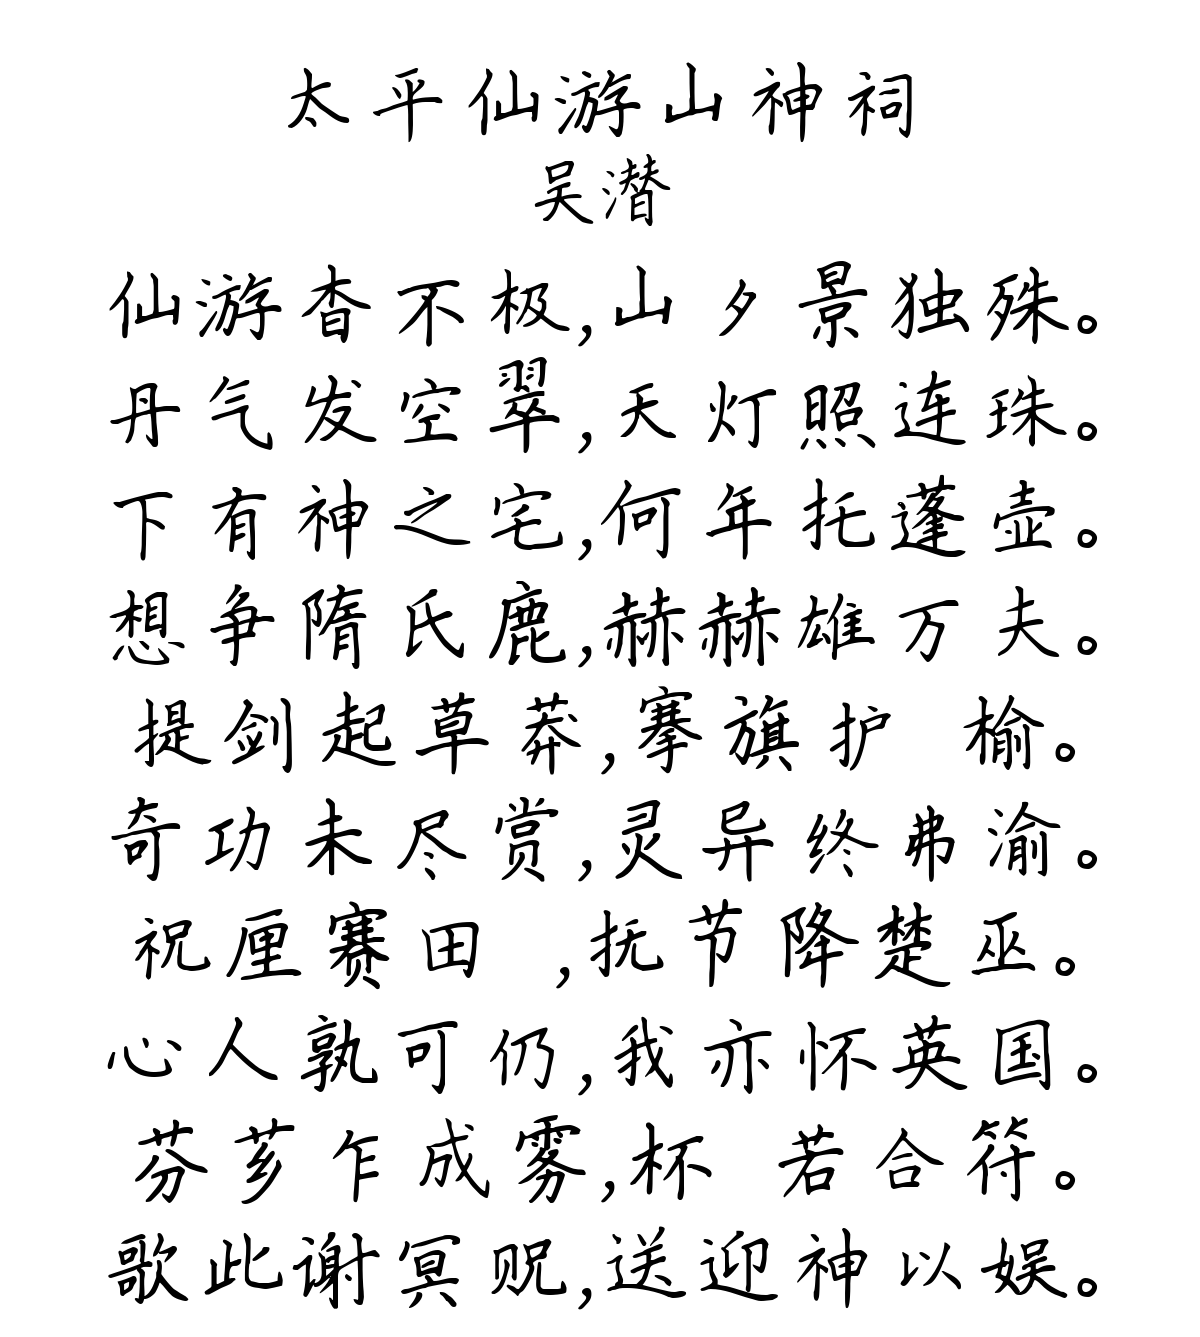 太平仙游山神祠
吴潜
仙游杳不极,山夕景独殊。
丹气发空翠,天灯照连珠。
下有神之宅,何年托蓬壶。
想争隋氏鹿,赫赫雄万夫。
提剑起草莽,搴旗护 榆。
奇功未尽赏,灵异终弗渝。
祝厘赛田 ,抚节降楚巫。
心人孰可仍,我亦怀英国。
芬芗乍成雾,杯 若合符。
歌此谢冥贶,送迎神以娱。